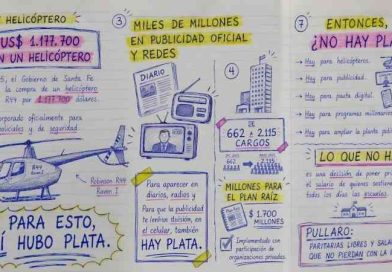 HELICÓPTERO
US$ 1.177.700
EN UN HELICÓPTERO
el Gobierno de Santa Fe
la compra de un helicóptero
R44 por 1.177.700 dólares.
incorporado oficialmente para
policiales y de seguridad.
Robinson R44
Raven I
PARA ESTO,
SÍ HUBO PLATA.
3
MILES DE MILLONES
EN PUBLICIDAD OFICIAL
Y REDES
DIARIO
Para aparecer en
diarios, radios y
Para que la publicidad
en el celular, también
HAY PLATA.
4
DE
662 A 2.115
CARGOS
662
2.115
MILLONES PARA
EL PLAN RAÍZ
$ 1.700
MILLONES
Implementado con
participación de
organizaciones privadas.
7
ENTONCES,
¿NO HAY PLATA
Hay para helicópteros.
Hay para publicidad.
Hay para pauta digital.
Hay para programas millonarios
Hay para ampliar la planta
LO QUE NO H
es una decisión de poner
el salario de quienes sostienen
todos los días las escuelas.
PULLARO:
PARITARIAS LIBRES Y SALA
QUE NO PIERDAN CON LA